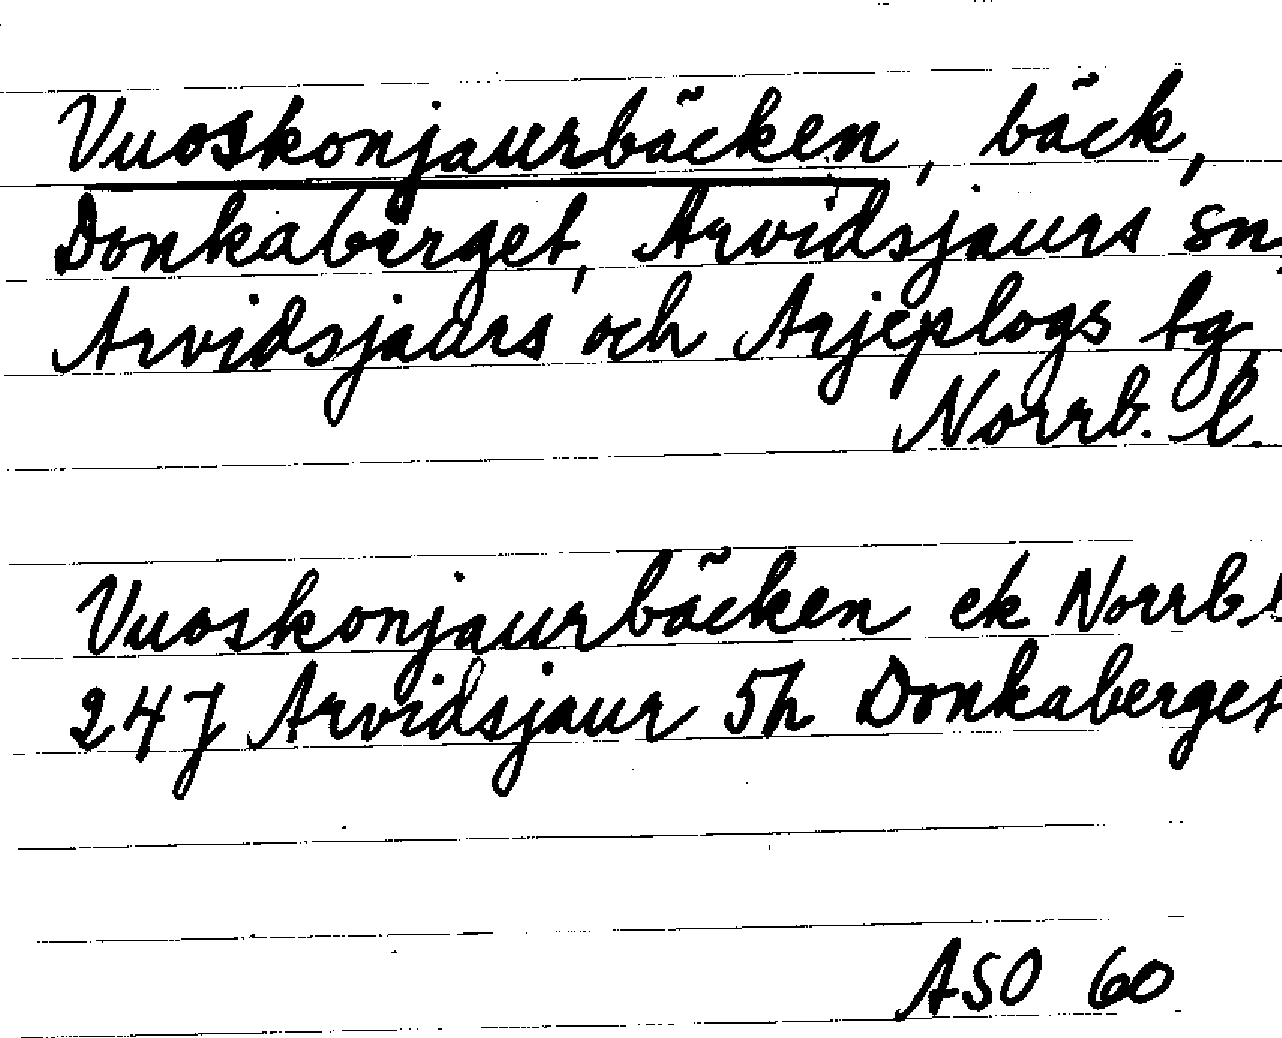 Vuoskonjaurbäcken, bäck,
Donkaberget, Arvidsjaurs sn,
Arvidsjaurs och Arjeplogs tg,
Norrb. l.
Vuoskonjaurbäcken ek Norrb l
24 J Arvidsjaur 5h Donkaberget
ASO 60